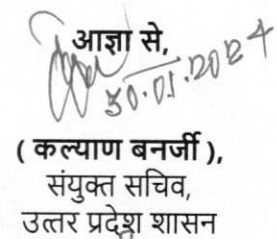 आज्ञा से,
30.01.2024
( कल्याण बनर्जी ),
संयुक्त सचिव,
उत्तर प्रदेश शासन